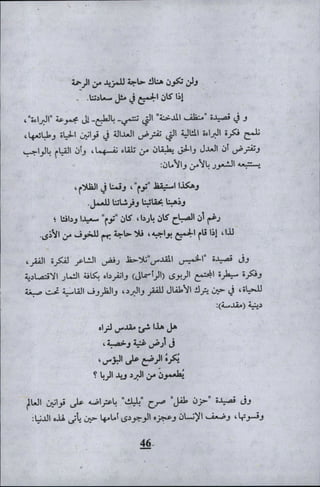 ولن تكون هناك حاجة للمزيد من الرحمة
إذا كان الجميع في مثل سعادتنا.
و في قصيدة "منظف المدخنة" التي تنتمي -بالطبع- إلى مجموعة "البراءة"،
نلمح فكرة البراءة المثالية التي تفترض العدالة في قوانين الحياة وطبائعها،
وتفترض أن العدل والحق ينبثقان من تلقاء نفسهما، وأن القيام بالواجب
يستتبعه الشعور بالأمن والأمان:
وهكذا استيقظ "توم"، وقمنا في الظلام،
وذهبنا بحقائبنا وفرشاتنا للعمل.
رغم أن الصباح كان باردا، كان "توم" سعيدا ودافئا ؛
لذا، إذا قام الجميع بواجبهم، فلا حاجة بهم للخوف من الأذى.
وفي قصيدة "الخميس المقدس" نلاحظ رفض الشاعر لفكرة الفقر،
وفكرة سيطرة المجتمع البرجوازي (الرأسمالي) وانفراده بكافة الثمار الاقتصادية
للحياة، في حين يترك الأطفال للفقر والبرد، والظروف القاسية تحت صيغة
دينية (مقدسة):
هل هذا شئ مقدس لنراه
في أرض غنية وخصبة،
يُكرَه الرضع على البؤس،
يُطعمون من البرد ويد الربا ؟
وفى قصيدة "حزن طفل" صرح "بليك" باعتراضه على قوانين العالم
وقسوتها، وضعف الإنسان وعجزه الوجودى أمامها حين يأتى لهذه الدنيا:
46